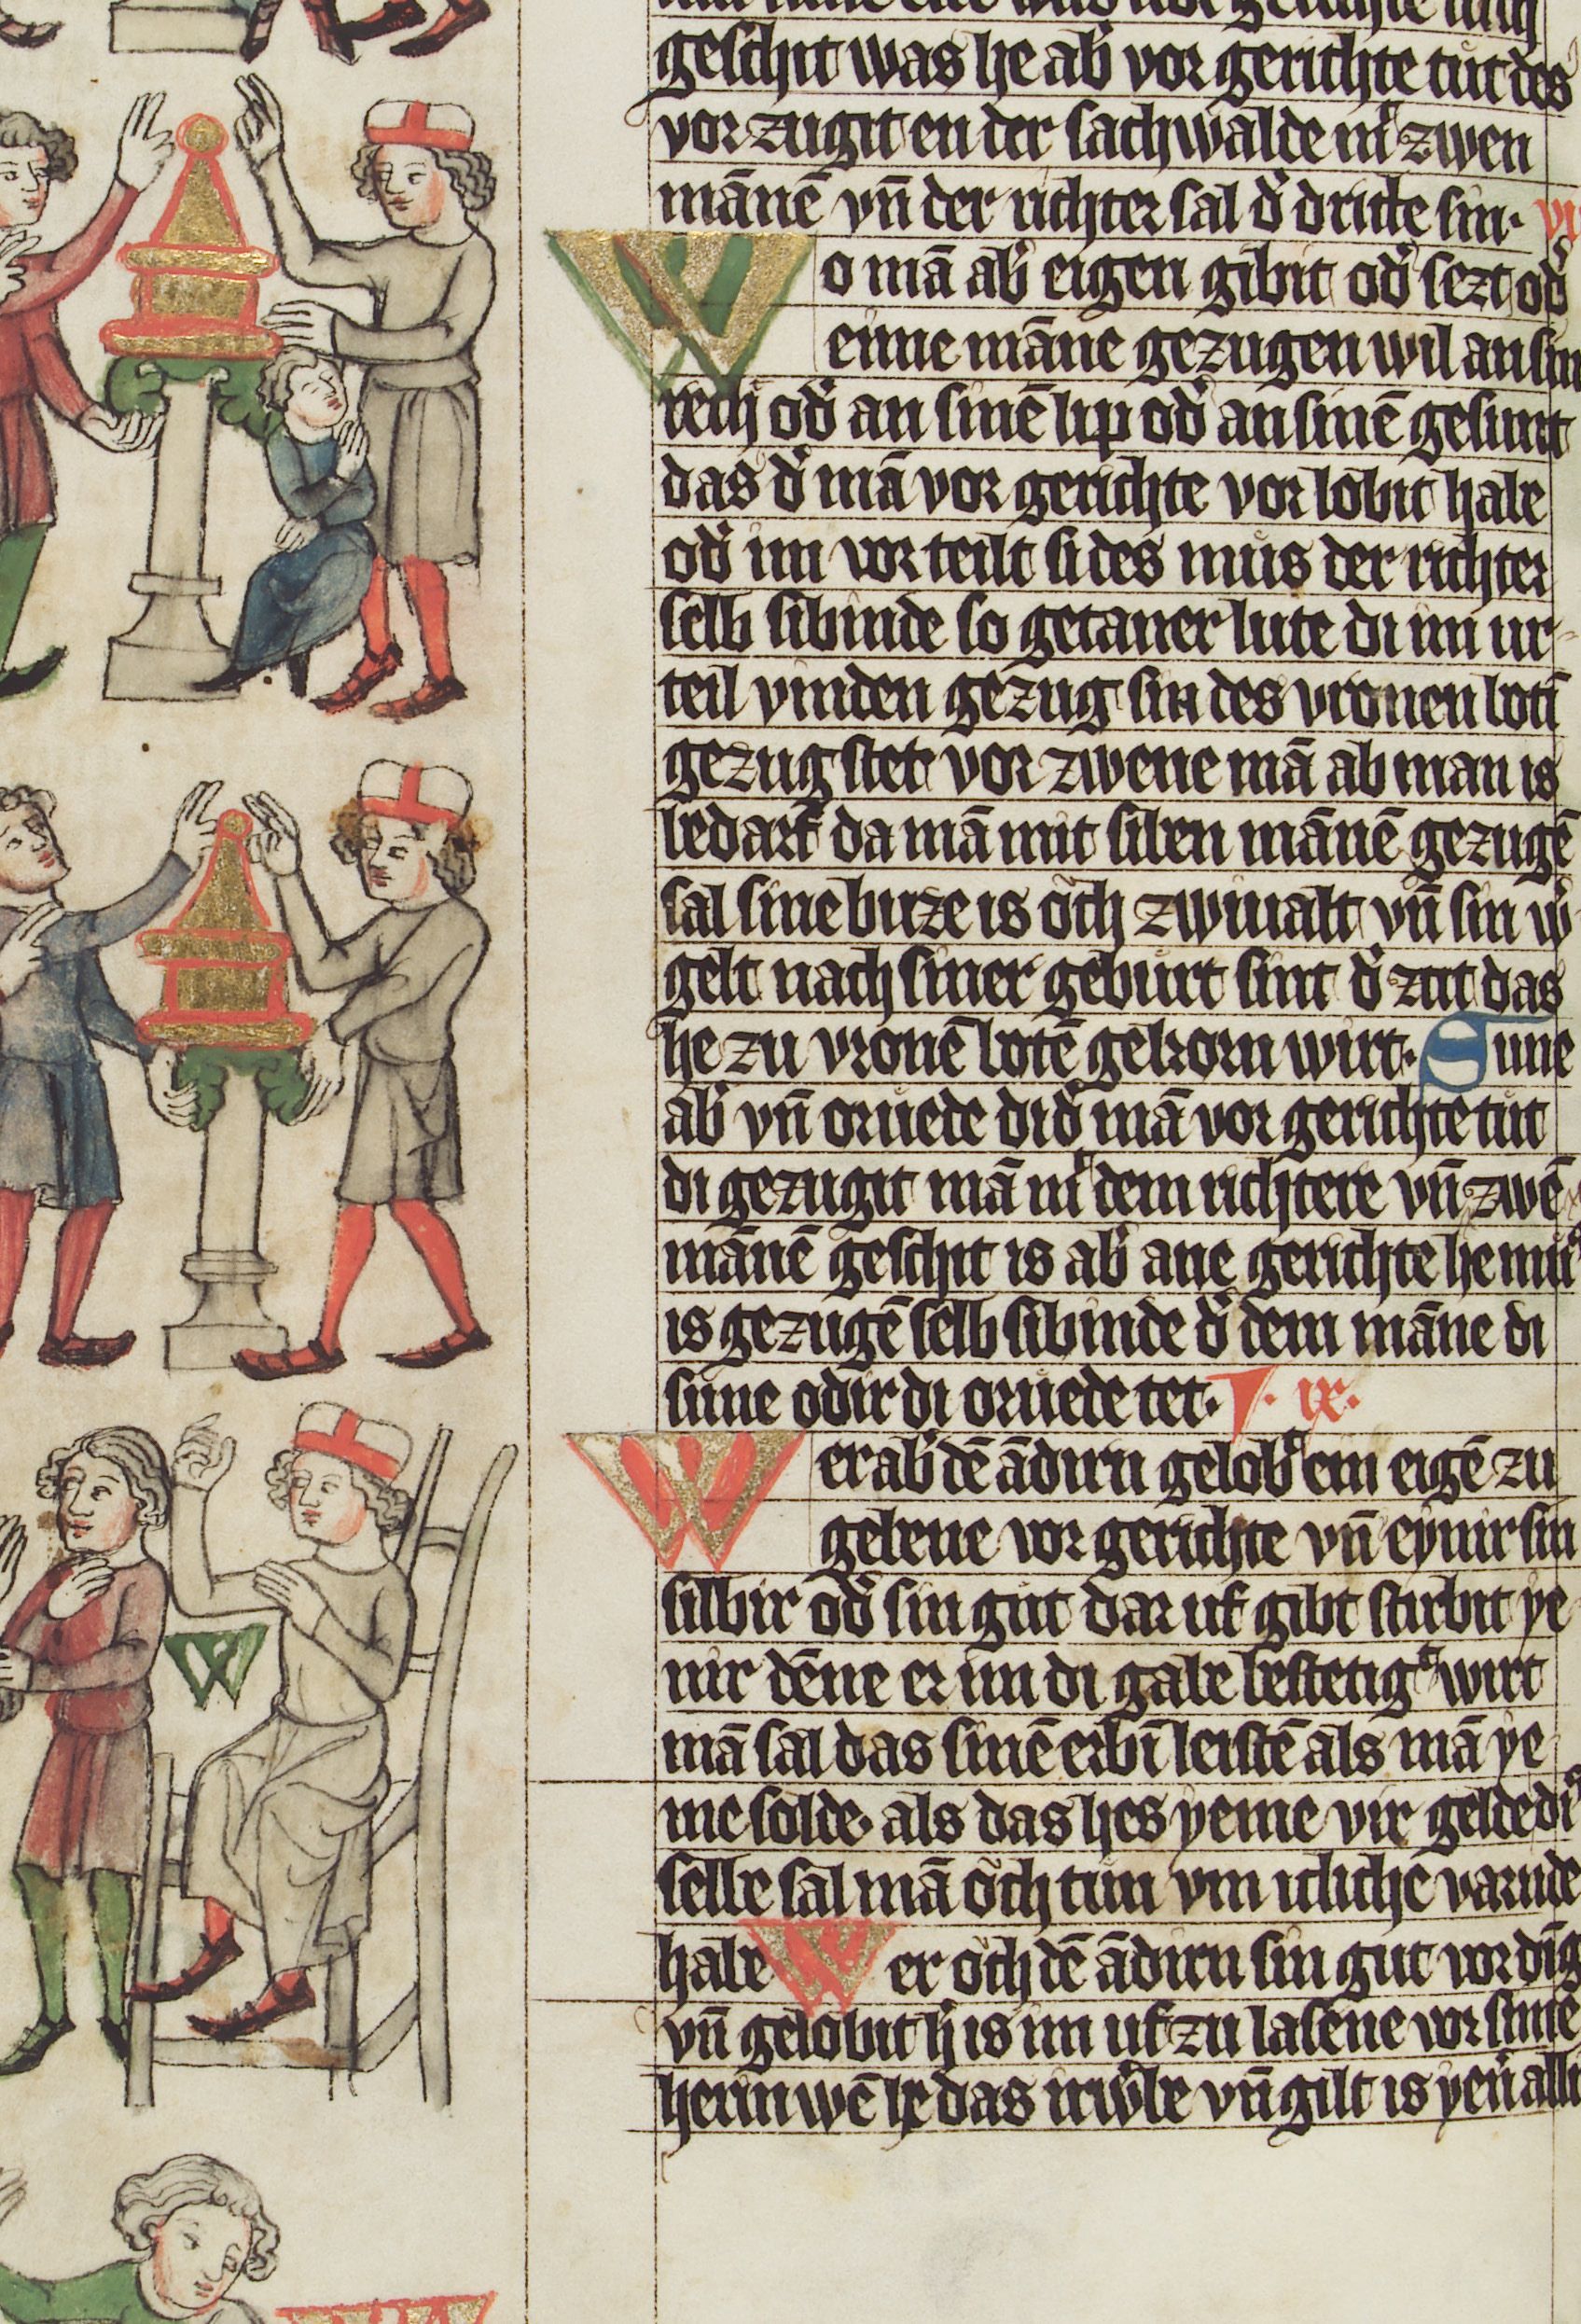 geschit was he ab' vor gerichte tut des
vorzugit en der sachwalde mit zwen
mānē vn̄ der richter sal d' dritte sin·
Wo mā ab' eigen gibit od' sezt od'
eime māne gezugen wil an sin
rech od' an sinē lip od' an sinē gesunt
das d' mā vor gerichte vorlobit habe
od' im vorteilt si des mus der richter
selb sibinde so getaner lute di im ur
teil vinden gezug sin des vronen boti
gezug stet vor zwene mā ab man is
bedarf da mā mit siben mānē gezugē
sal sine buze is och zwiualt vn̄ sin w'
gelt nach siner geburt sint d' zit das
he zu vronē botē gekorn wirt· Sune
ab' vn̄ oruede di d' mā vor gerichte tut
di gezugit mā mit dem richtere vn̄ zwē
mānē geschit is ab' ane gerichte he mus
is gezugē selb sibinde d' dem māne di
sune odir di oruede tet· ix·
Wer ab' dē ādirn gelobit ein eigē zu
gebene vor gerichte vn̄ eynir sin
silbir od' sin gut dar uf gibt stirbit ye
nir dēne er im di gabe bestetigt wirt
mā sal das sinē erbī leistē als mā ye
me solde· als das hes yeme vir gelde di
selbe sal mā och tun vm itliche varnde
habe Wer och dē ādirn sin gut vordīg
vn̄ gelobit h' is im uf zu lasene vor sime
herin wē he das irw'be vn̄ gilt is yen'